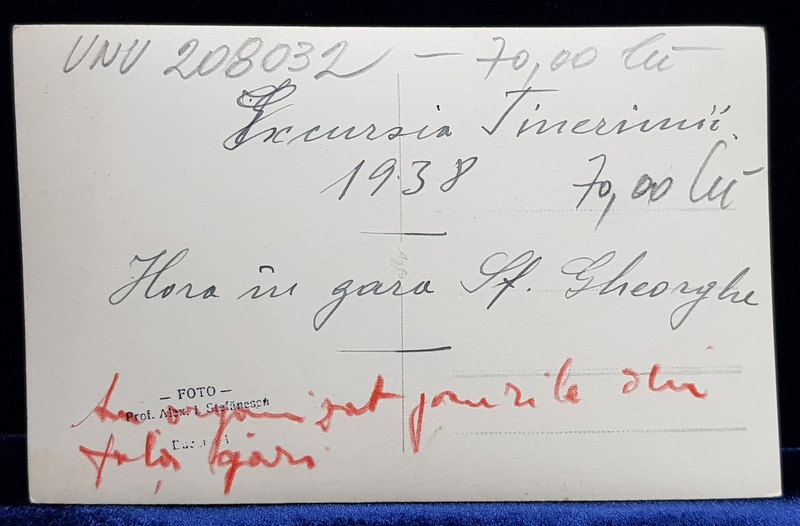 UNU 208032 — 70,00 lei
Excursia Tinerimii
1938
70,00 lei
Hora în gara Sf. Gheorghe
— FOTO —
Prof. Alex. I. Stefănescu
Au organizat din
fața gări